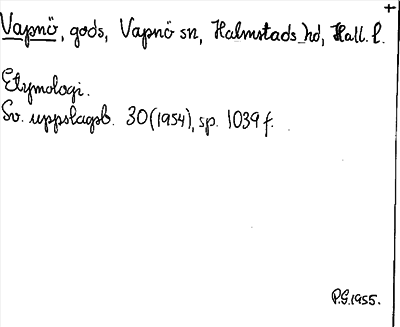 +
Vapnö, gods, Vapnö sn, Halmstads hd, Hall. l.
Etymologi.
Sv. uppslagsb. 30 (1954), sp. 1039 f.
P.G. 1955.